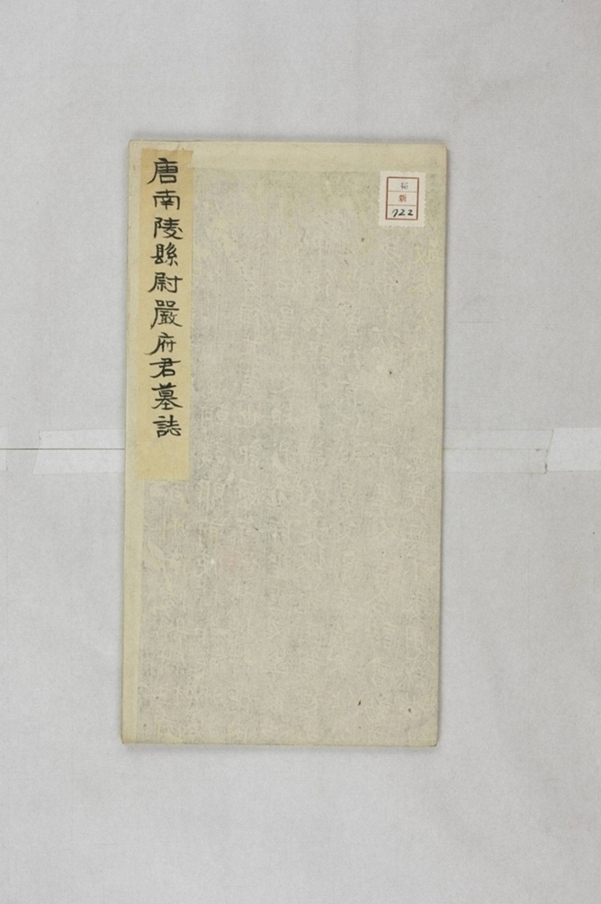 唐南陵縣尉嚴府君墓誌
新
722